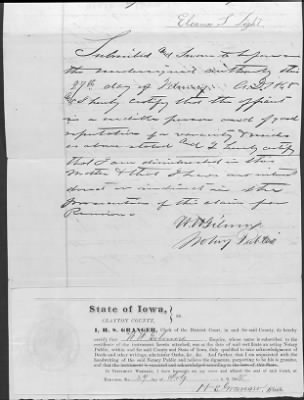 Eleanor T. Light
Submitted and Sworn to before me
the undersigned authority this
27th day of February A.D. 1868
& I hereby certify that the affiant
is a credible person and of good
reputation for veracity
as above stated and I hereby certify
that I am disinterested in this
Matter & that I have no interest
direct or indirect in the
prosecution of the claim for
Pension.
W. A. Gilmore
Notary Public
State of Iowa,
CLAYTON COUNTY, } ss.
I, H. S. GRANGER, Clerk of the District Court, in and for said County, do hereby
certify that Esquire, whose name is subscribed to the
certificate of the instrument hereto attached, was at the date of said certificate an acting Notary
Public, within and for said County and State of Iowa, duly qualified to take acknowledgments of
Deeds and other writings, administer Oaths, &c. &c. And further that I am acquainted with the
handwriting of the said Notary Public and believe the signature, purporting to be his is genuine,
and that the instrument is executed according to the laws of the State.
IN TESTIMONY WHEREOF, I have hereunto set my name and affixed the seal of said Court, at
27 day of Feby
H. S. Granger, Clerk